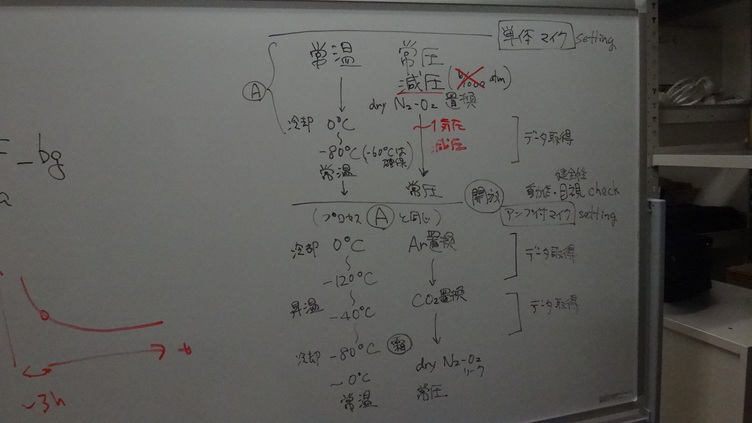 単体マイク setting
常温 常圧
減圧 (6/1000 atm)
Ⓐ
dry N₂-O₂ 置換
冷却 0℃ ~1気圧
~ 減圧
データ取得
-80℃ (-60℃は確保)
常温
常圧
開放
健全性
動作・目視 check
(プロセス Ⓐ と同じ)
アンプ付マイク setting
冷却 0℃ Ar置換
~
データ取得
-120℃
昇温 ~ CO₂置換
-40℃ データ取得
~
冷却 -80℃ 霜 dry N₂-O₂
リーク
~0℃
常温 常圧
= _ bg
a
t
~3h